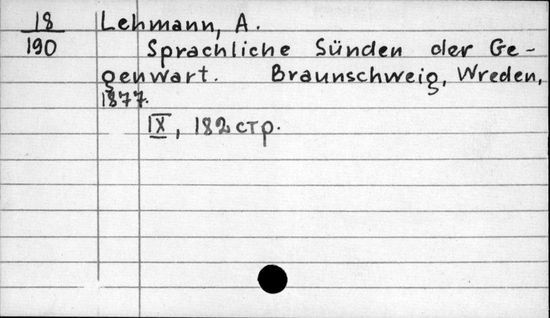 18
190
Lehmann, A.
Sprachliche Sünden der Ge-
genwart. Braunschweig, Wreden,
1877.
IX, 182 стр.